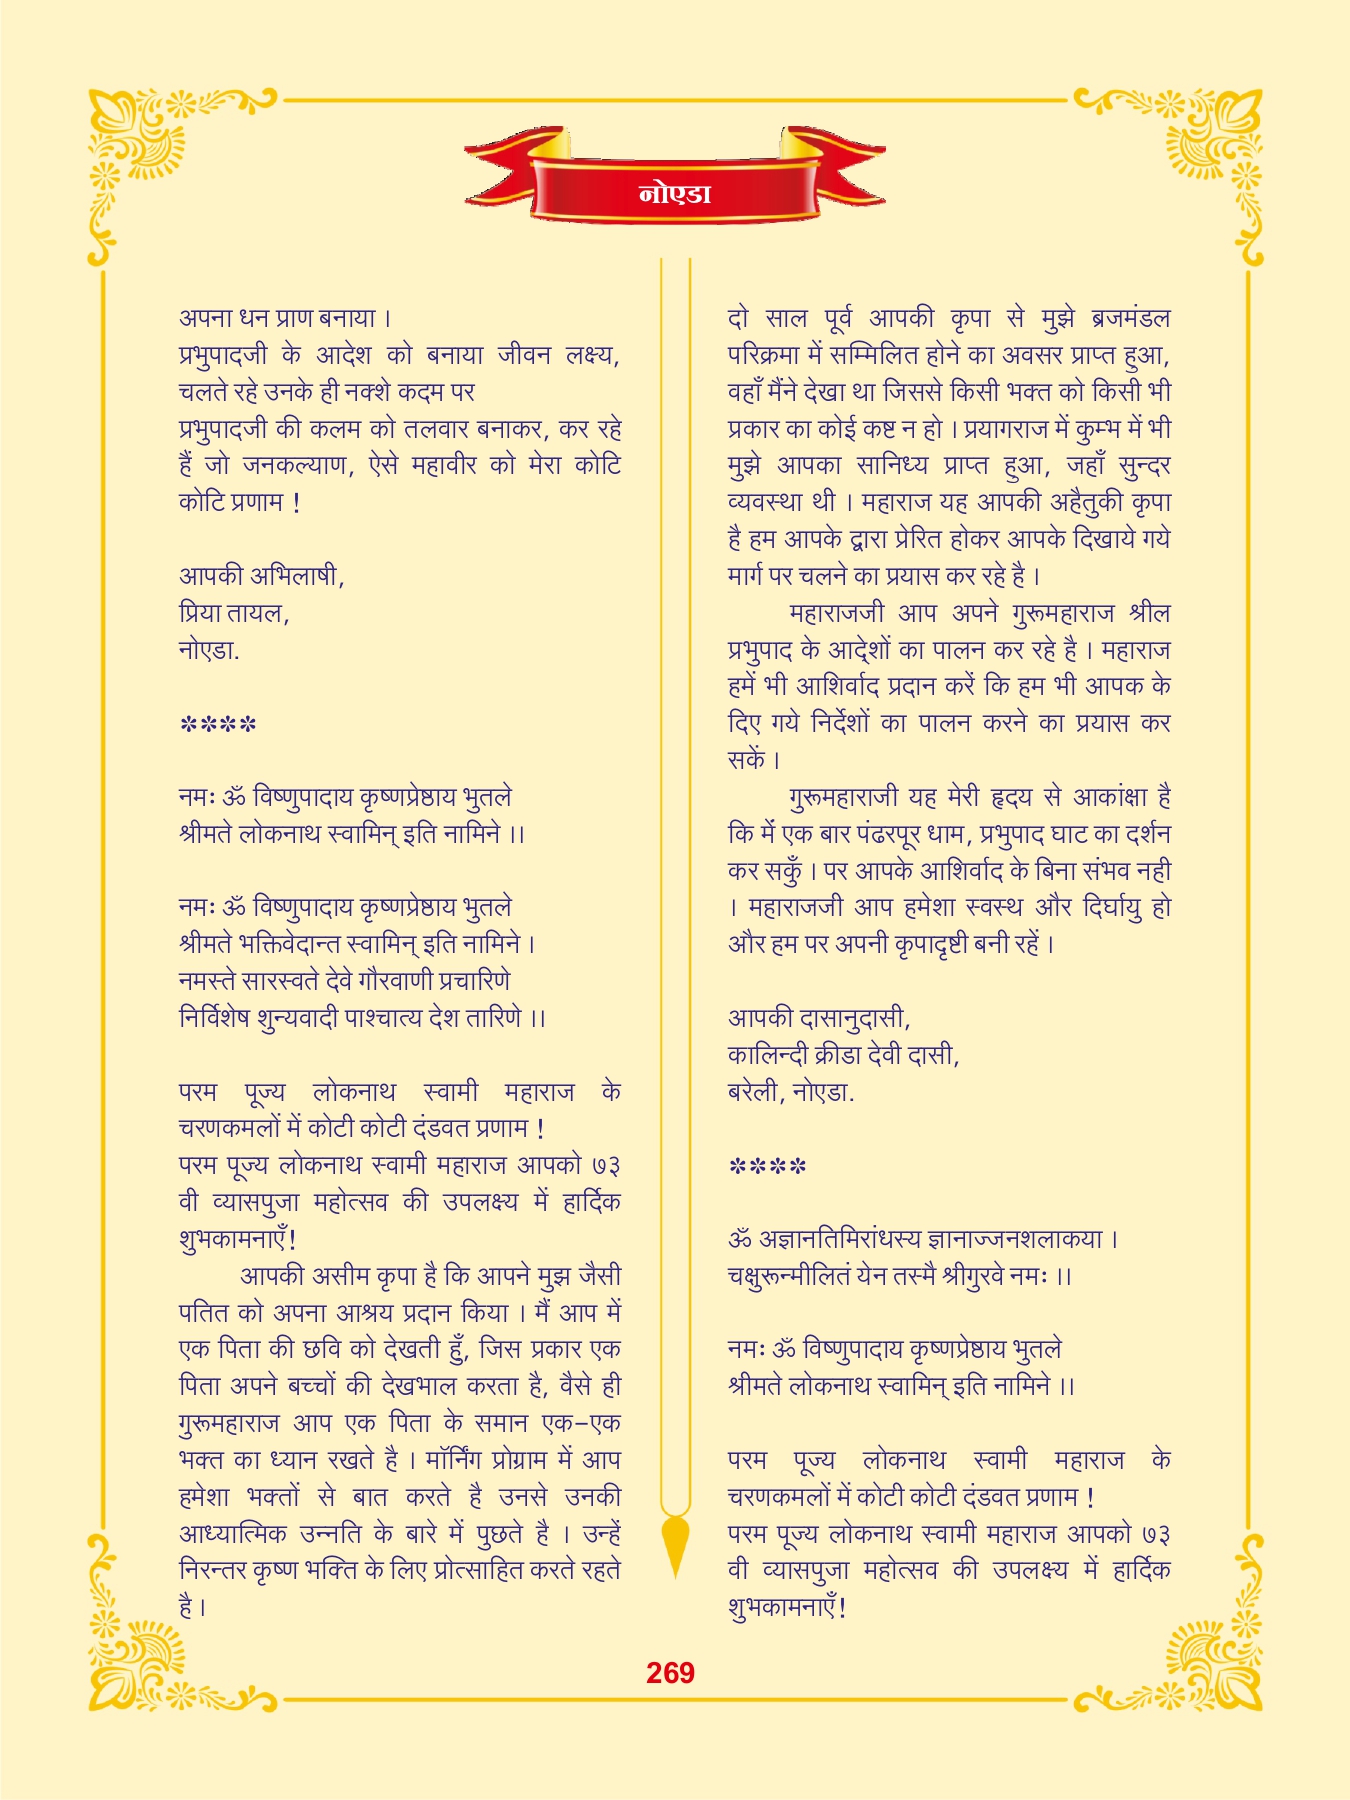 नोएडा
अपना धन प्राण बनाया ।
प्रभुपादजी के आदेश को बनाया जीवन लक्ष्य,
चलते रहे उनके ही नक्शे कदम पर
प्रभुपादजी की कलम को तलवार बनाकर, कर रहे
हैं जो जनकल्याण, ऐसे महावीर को मेरा कोटि
कोटि प्रणाम !
आपकी अभिलाषी,
प्रिया तायल,
नोएडा.
****
नमः ॐ विष्णुपादाय कृष्णप्रेष्ठाय भुतले
श्रीमते लोकनाथ स्वामिन् इति नामिने ।।
नमः ॐ विष्णुपादाय कृष्णप्रेष्ठाय भुतले
श्रीमते भक्तिवेदान्त स्वामिन् इति नामिने ।
नमस्ते सारस्वते देवे गौरवाणी प्रचारिणे
निर्विशेष शुन्यवादी पाश्चात्य देश तारिणे ।।
परम पूज्य लोकनाथ स्वामी महाराज के
चरणकमलों में कोटी कोटी दंडवत प्रणाम !
परम पूज्य लोकनाथ स्वामी महाराज आपको ७३
वी व्यासपुजा महोत्सव की उपलक्ष्य में हार्दिक
शुभकामनाएँ!
आपकी असीम कृपा है कि आपने मुझ जैसी
पतित को अपना आश्रय प्रदान किया । मैं आप में
एक पिता की छवि को देखती हुँ, जिस प्रकार एक
पिता अपने बच्चों की देखभाल करता है, वैसे ही
गुरूमहाराज आप एक पिता के समान एक–एक
भक्त का ध्यान रखते है । मॉर्निंग प्रोग्राम में आप
हमेशा भक्तों से बात करते है उनसे उनकी
आध्यात्मिक उन्नति के बारे में पुछते है । उन्हें
निरन्तर कृष्ण भक्ति के लिए प्रोत्साहित करते रहते
है ।
दो साल पूर्व आपकी कृपा से मुझे ब्रजमंडल
परिक्रमा में सम्मिलित होने का अवसर प्राप्त हुआ,
वहाँ मैंने देखा था जिससे किसी भक्त को किसी भी
प्रकार का कोई कष्ट न हो । प्रयागराज में कुम्भ में भी
मुझे आपका सानिध्य प्राप्त हुआ, जहाँ सुन्दर
व्यवस्था थी । महाराज यह आपकी अहैतुकी कृपा
है हम आपके द्वारा प्रेरित होकर आपके दिखाये गये
मार्ग पर चलने का प्रयास कर रहे है ।
महाराजजी आप अपने गुरूमहाराज श्रील
प्रभुपाद के आदे्शों का पालन कर रहे है । महाराज
हमें भी आशिर्वाद प्रदान करें कि हम भी आपक के
दिए गये निर्देशों का पालन करने का प्रयास कर
सकें ।
गुरूमहाराजी यह मेरी हृदय से आकांक्षा है
कि में एक बार पंढरपूर धाम, प्रभुपाद घाट का दर्शन
कर सकुँ । पर आपके आशिर्वाद के बिना संभव नही
। महाराजजी आप हमेशा स्वस्थ और दिर्घायु हो
और हम पर अपनी कृपादृष्टी बनी रहें ।
आपकी दासानुदासी,
कालिन्दी क्रीडा देवी दासी,
बरेली, नोएडा.
****
ॐ अज्ञानतिमिरांधस्य ज्ञानाज्जनशलाकया ।
चक्षुरून्मीलितं येन तस्मै श्रीगुरवे नमः ।।
नमः ॐ विष्णुपादाय कृष्णप्रेष्ठाय भुतले
श्रीमते लोकनाथ स्वामिन् इति नामिने ।।
परम पूज्य लोकनाथ स्वामी महाराज के
चरणकमलों में कोटी कोटी दंडवत प्रणाम !
परम पूज्य लोकनाथ स्वामी महाराज आपको ७३
वी व्यासपुजा महोत्सव की उपलक्ष्य में हार्दिक
शुभकामनाएँ!
269